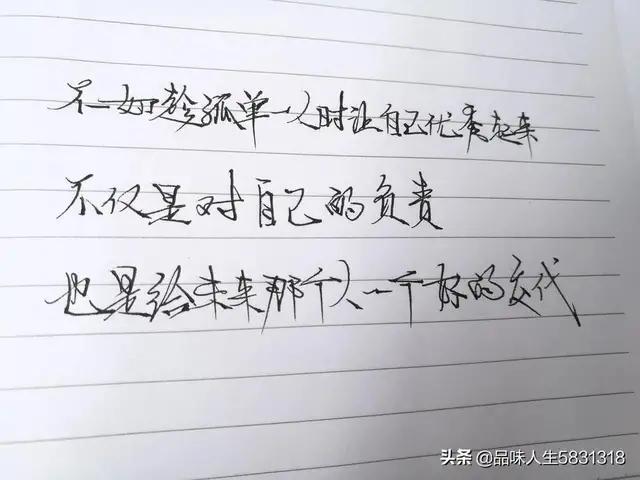 不如趁孤单一人时让自己优秀起来
不仅是对自己的负责
也是给未来那个人一个好的交代
头条 @品味人生5831318